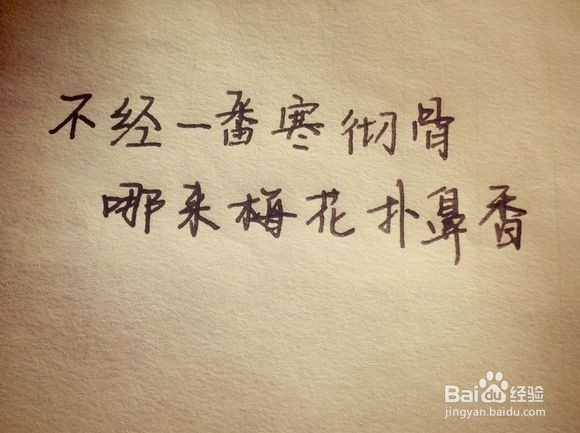 不经一番寒彻骨
哪来梅花扑鼻香
Baidu经验
jingyan.baidu.com